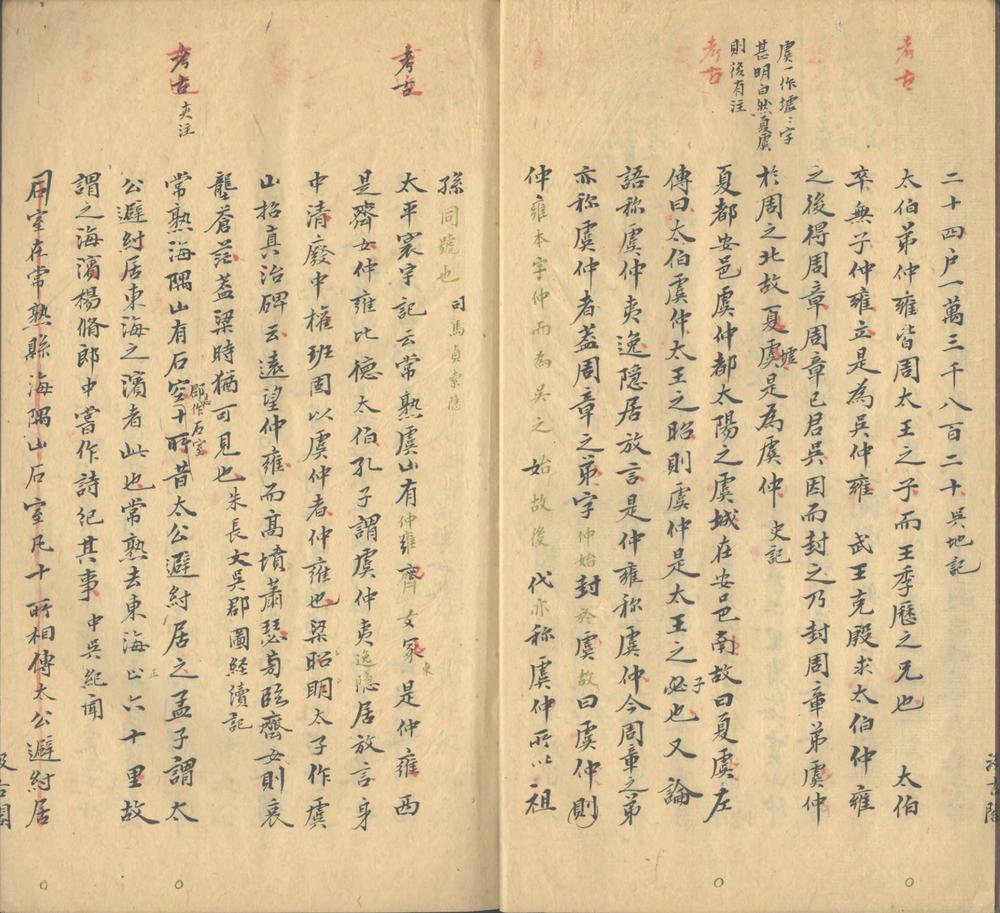 二十四户一萬三千八百二十吳地記
考古
太伯弟仲雍皆周太王之子而王季歷之兄也 太伯
卒無子仲雍立是為吳仲雍 武王克殷求太伯仲雍
之後得周章周章已君吳因而封之乃封周章弟虞仲
虞一作墟二字
甚明白然夏虞
則後有注
於周之北故夏虞是為虞仲 史記
墟
考古
夏都安邑虞仲都太陽之虞城在安邑南故曰夏虞左
傳曰太伯虞仲太王之昭則虞仲是太王之必也又論
子
語称虞仲夷逸隐居放言是仲雍称虞仲今周章之弟
亦称虞仲者盖周章之弟字仲始封於虞故曰虞仲則
仲雍本字仲而為吳之始故後代亦称虞仲所以祖
孫同號也 司馬貞索隐
考古
太平寰宇記云常熟虞山有仲雍齊女冢東是仲雍西
是齊女仲雍比德太伯孔子謂虞仲夷逸隐居放言身
中清廢中權班固以虞仲者仲雍也梁昭明太子作虞
山招真治碑云遠望仲雍而高墳蕭瑟旁臨齊女則哀
壟蒼茫盖梁時猶可見也 朱長文吳郡圖経續記
考古 夾注
常熟海隅山有石室十所昔太公避紂居之孟子謂太
公避紂居東海之濱者此也常熟去東海止六十里故
謂之海濱楊脩郎中嘗作詩紀其事 中吳紀聞
石室在常熟縣海隅山石室凡十所相傳太公避紂居